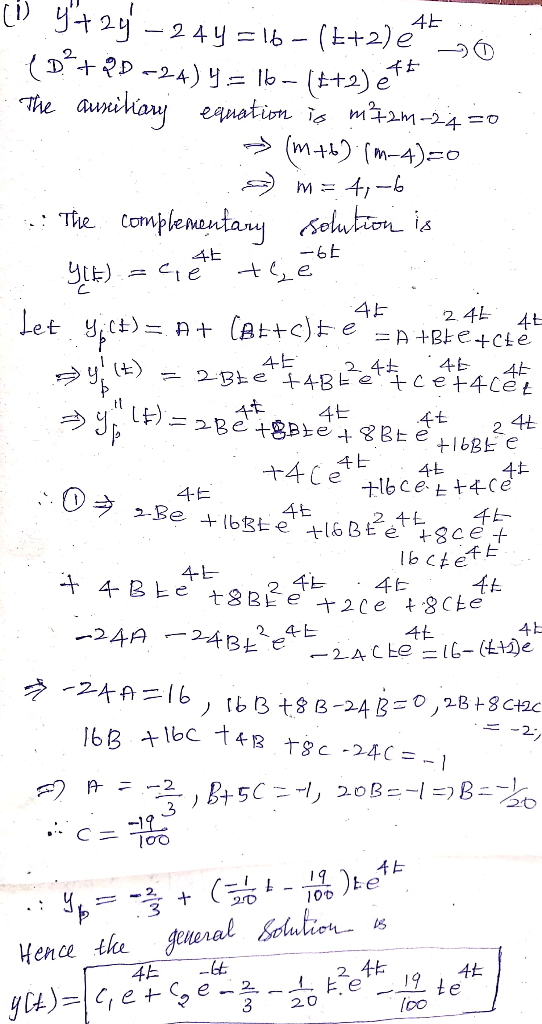 (i) y'' + 2y' - 24y = 16 - (t+2)e^{4t} → ①
(D² + 2D - 24)y = 16 - (t+2)e^{4t}
The auxiliary equation is m² + 2m - 24 = 0
⇒ (m+6)(m-4) = 0
⇒ m = 4, -6
∴ The complementary solution is
y_c(t) = c₁e^{4t} + c₂e^{-6t}
Let y_p(t) = A + (Bt+C)t e^{4t} = A + Bt²e^{4t} + Cte^{4t}
⇒ y_p'(t) = 2Bte^{4t} + 4Bt²e^{4t} + Ce^{4t} + 4Ce^{4t}t
⇒ y_p''(t) = 2Be^{4t} + 8Bte^{4t} + 8Bte^{4t} + 16Bt²e^{4t}
+ 4Ce^{4t} + 16Ce^{4t}t + 4Ce^{4t}
∴ ① ⇒ 2Be^{4t} + 16Bte^{4t} + 16Bt²e^{4t} + 8Ce^{4t} +
16Cte^{4t}
+ 4Bte^{4t} + 8Bt²e^{4t} + 2Ce^{4t} + 8Cte^{4t}
- 24A - 24Bt²e^{4t} - 24Cte^{4t} = 16 - (t+2)e^{4t}
⇒ -24A = 16, 16B + 8B - 24B = 0, 2B + 8C + 2C = -2,
16B + 16C + 4B + 8C - 24C = -1
⇒ A = -2/3, B + 5C = -1, 20B = -1 ⇒ B = -1/20
∴ C = -19/100
∴ y_p = -2/3 + (-1/20 t - 19/100)te^{4t}
Hence the general solution is
y(t) = c₁e^{4t} + c₂e^{-6t} - 2/3 - 1/20 t²e^{4t} - 19/100 te^{4t}